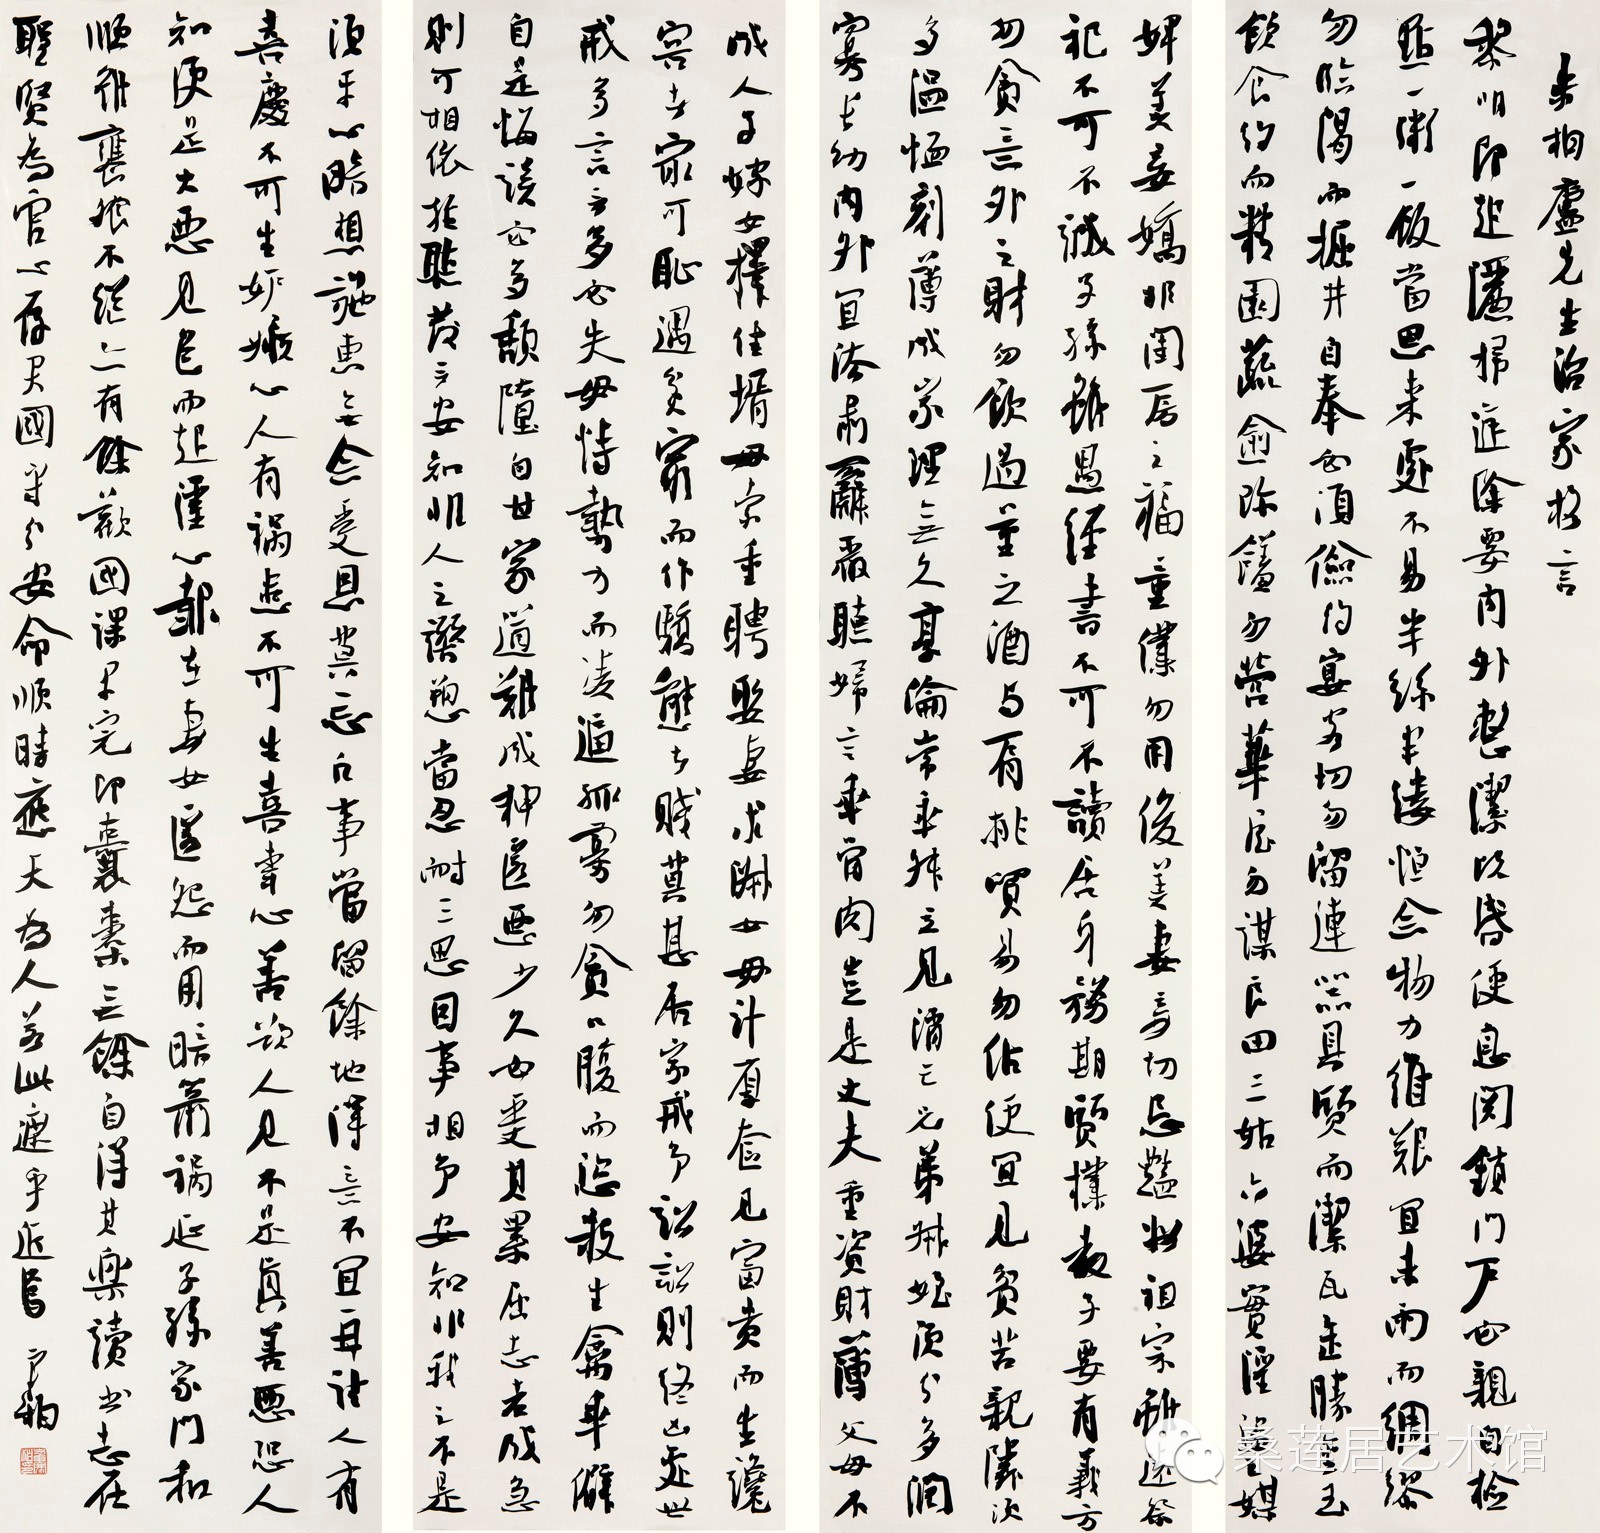 朱柏廬先生治家格言
黎明即起灑掃庭除要內外整潔既昏便息關鎖門戶必親自檢
點一粥一飯當思來處不易半絲半縷恒念物力維艱宜未雨而綢繆
勿臨渴而掘井自奉必須儉約宴客切勿留連器具質而潔瓦缶勝金玉
飲食約而精園蔬愈珍饈勿營華屋勿謀良田三姑六婆實淫盜之媒
婢美妾嬌非閨房之福童僕勿用俊美妻妾切忌艷妝祖宗雖遠祭
祀不可不誠子孫雖愚經書不可不讀居身務期質樸教子要有義方
勿貪意外之財勿飲過量之酒與肩挑貿易勿佔便宜見貧苦親鄰須
多溫恤刻薄成家理無久享倫常乖舛立見消亡兄弟叔姪須分多潤
寡長幼內外宜法肅辭嚴聽婦言乖骨肉豈是丈夫重資財薄父母不
成人子嫁女擇佳壻毋索重聘娶妻求淑女毋計厚奩見富貴而生讒
容者最可恥遇貧窮而作驕態者賤莫甚居家戒爭訟訟則終凶處世
戒多言言多必失毋恃勢力而凌逼孤寡勿貪口腹而恣殺生禽乖僻
自是悔誤必多頹隳自甘家道難成狎匿惡少久必受其累屈志老成急
則可相依輕聽發言安知非人之譖愬當忍耐三思因事相爭安知非我之不是
須平心暗想施惠無念受恩莫忘凡事當留餘地得意不宜再往人有
喜慶不可生妒嫉心人有禍患不可生喜幸心善欲人見不是真善惡恐人
知便是大惡見色而起淫心報在妻女匿怨而用暗箭禍延子孫家門和
順雖饔飧不繼亦有餘歡國課早完即囊橐無餘自得其樂讀書志在
聖賢為官心存君國守分安命順時應天為人若此庶乎近焉
桑莲居艺术馆